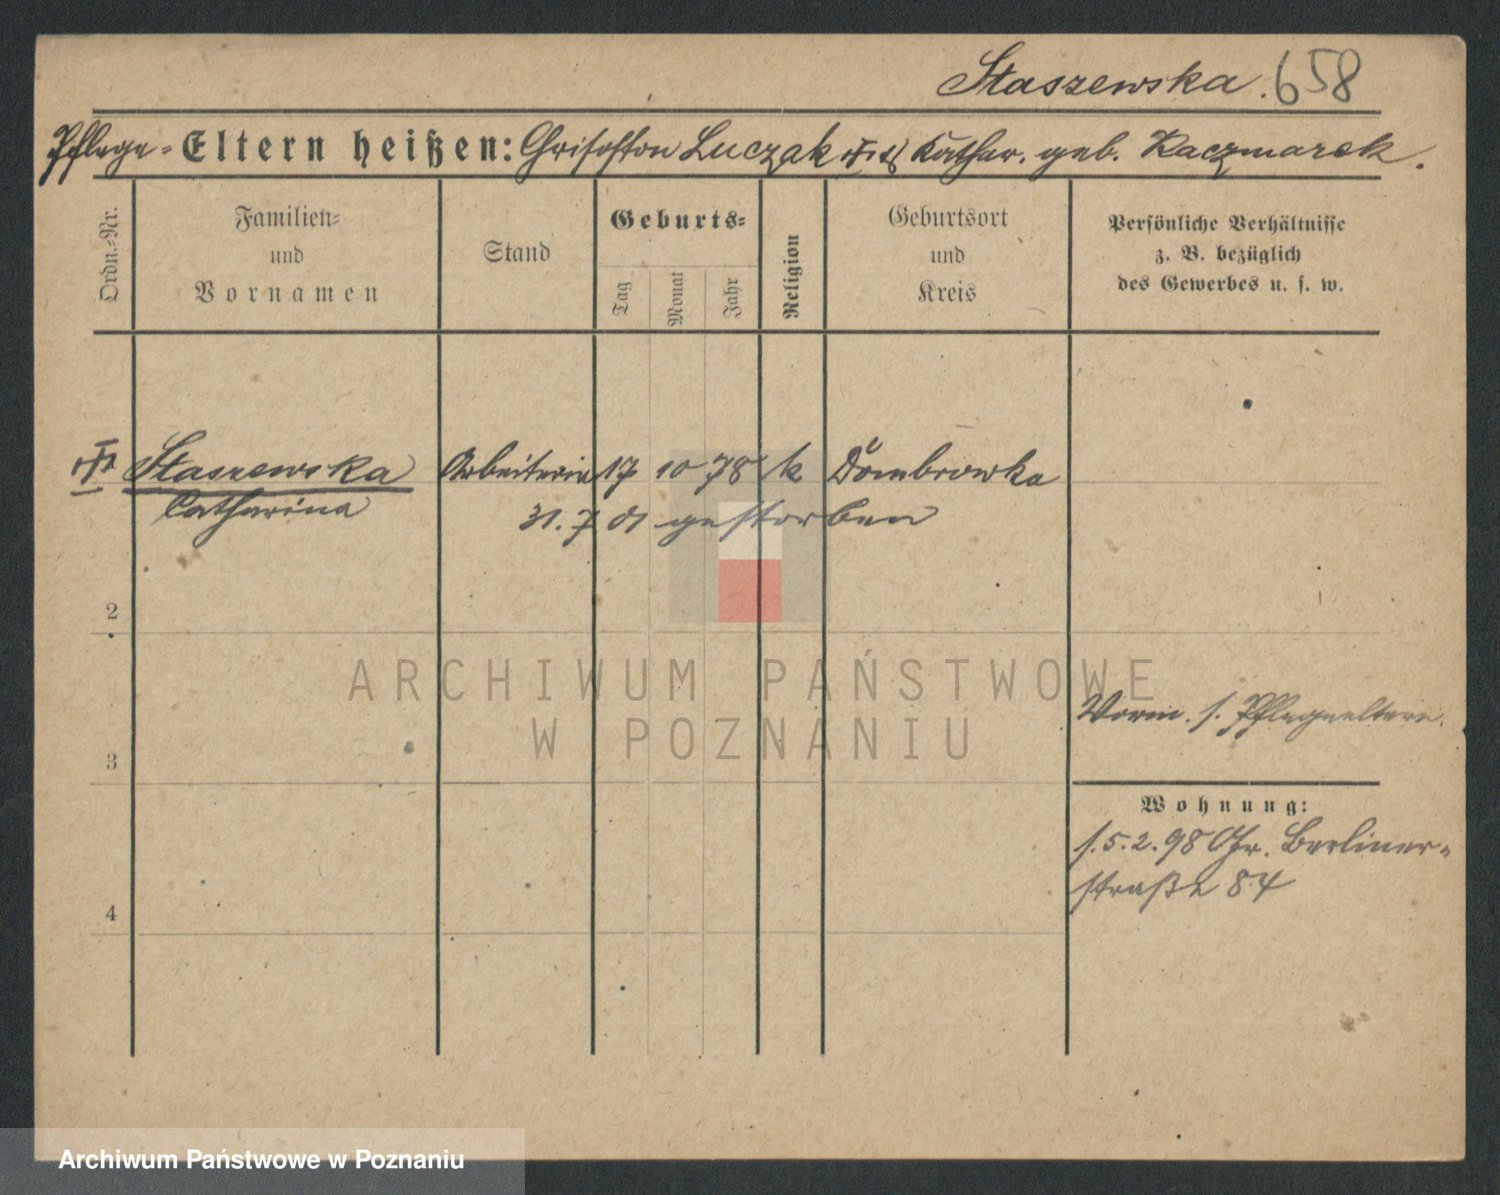 Staszewska. 658
Pflege-Eltern heißen: Chrisoston Luczak Kathar. geb. Kaczmarek.
Ordn.-Nr.
Familien-
und
Vornamen
Stand
Geburts-
Tag
Monat
Jahr
Religion
Geburtsort
und
Kreis
Persönliche Verhältnisse
z. B. bezüglich
des Gewerbes u. s. w.
Staszewska Arbeiterin 17 10 78 k Dombrowka
Catharina
31. 7 01 gestorben
2
ARCHIWUM PAŃSTWOWE
W POZNANIU
Vorm. s. Pflegeeltern.
3
Wohnung:
s. 5. 2. 98 Gr. Berliner-
straße 84
4
Archiwum Państwowe w Poznaniu